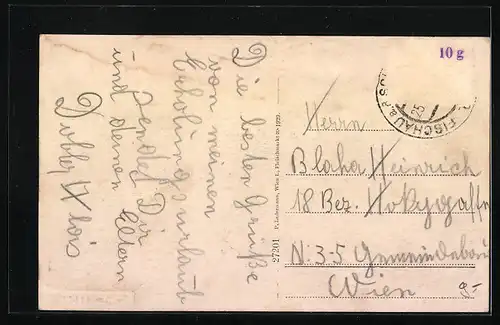 Die besten Grüße
von meinen
Erholungsurlaub
sendet Dir
und deinen Eltern
Alois
10 g
FISCHAU a. 
25
Herrn
Blaha Heinrich
18 Bez.
N: 3-5 Gemeindebau
Wien
27201
P. Ledermann, Wien I., Fleischmarkt
8-